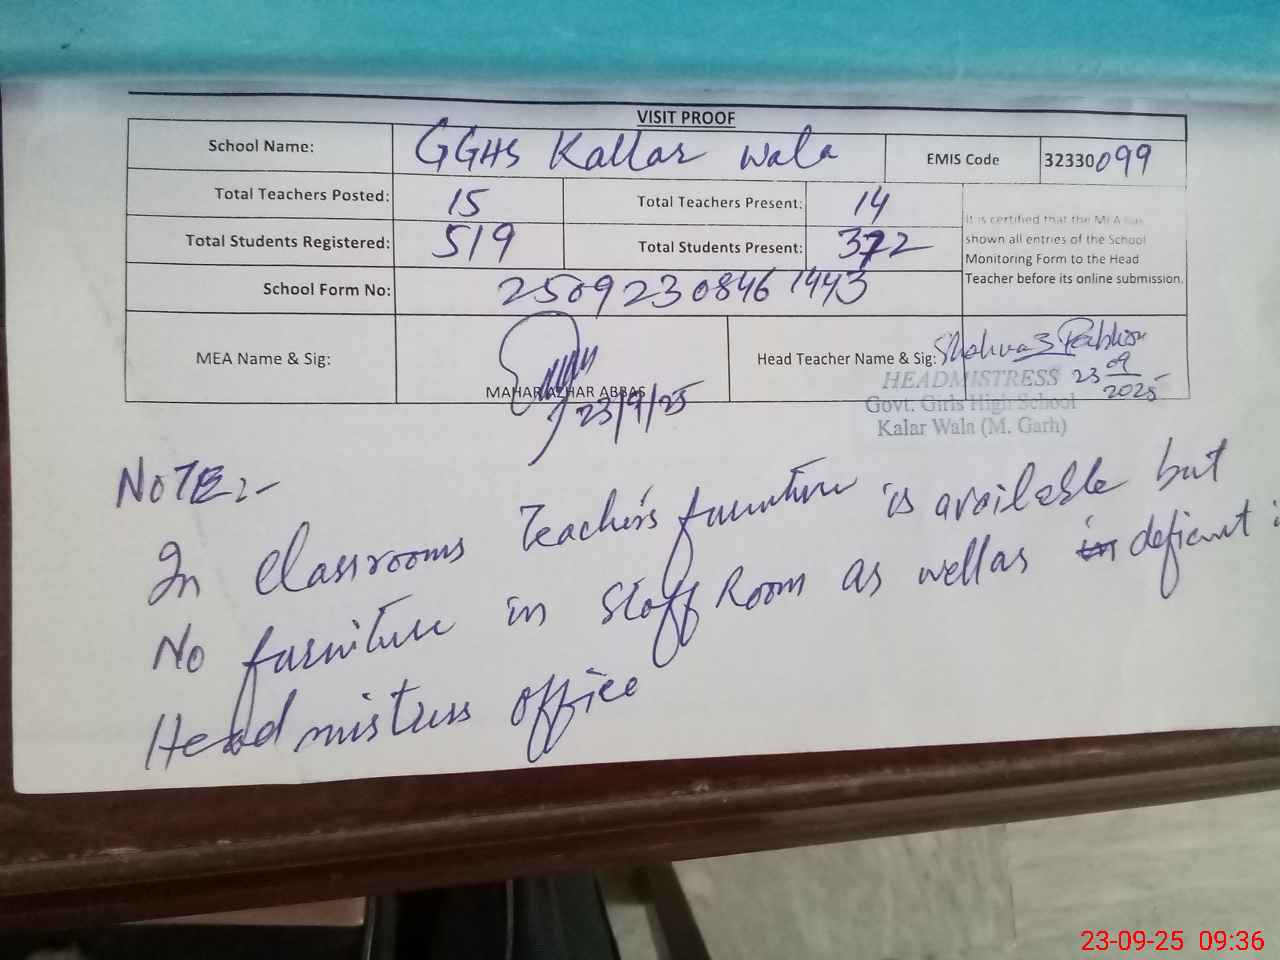 VISIT PROOF
School Name: GGHS Kallar wala EMIS Code 32330099
Total Teachers Posted: 15 Total Teachers Present: 14
Total Students Registered: 519 Total Students Present: 372
School Form No: 25092308461443
It is certified that the MEA has
shown all entries of the School
Monitoring Form to the Head
Teacher before its online submission.
MEA Name & Sig: MAHAR AZHAR ABBAS
23/9/25
Head Teacher Name & Sig:
23 09
2025
HEADMISTRESS
Govt. Girls High School
Kalar Wala (M. Garh)
NOTE:-
In classrooms Teacher's furniture is available but
No furniture in Staff Room as wellas deficient i
Headmistress office
23-09-25 09:36